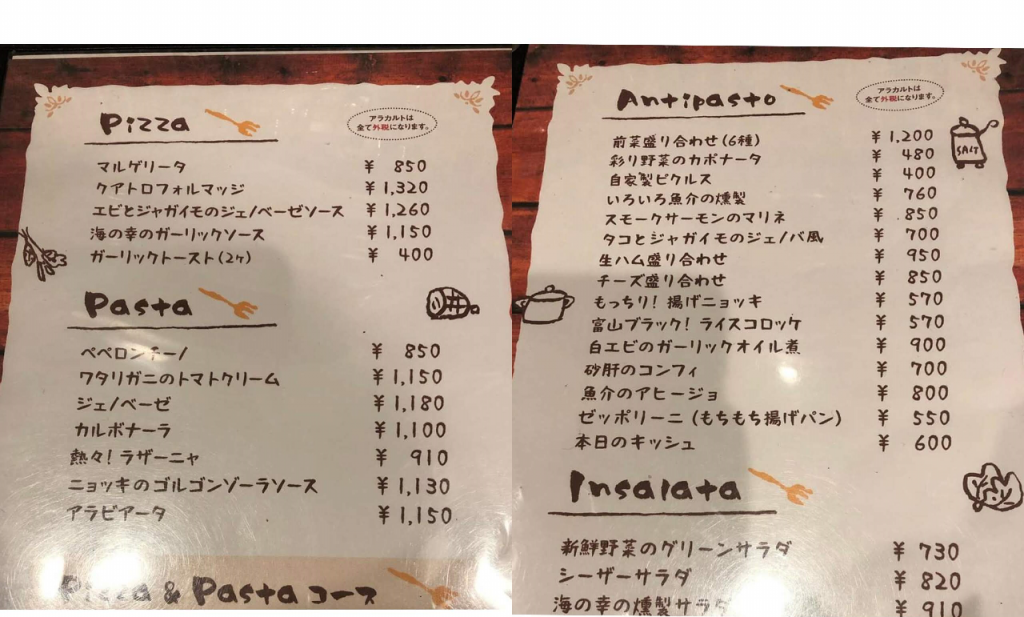 Pizza
アラカルトは
全て外税になります。
マルゲリータ ¥ 850
クアトロフォルマッジ ¥1,320
エビとジャガイモのジェノベーゼソース ¥1,260
海の幸のガーリックソース ¥1,150
ガーリックトースト(2ヶ) ¥ 400
Pasta
ペペロンチーノ ¥ 850
ワタリガニのトマトクリーム ¥1,150
ジェノベーゼ ¥1,180
カルボナーラ ¥1,100
熱々!ラザーニャ ¥ 910
ニョッキのゴルゴンゾーラソース ¥1,130
アラビアータ ¥1,150
Pizza & Pasta コース
Antipasto
アラカルトは
全て外税になります。
SALT
前菜盛り合わせ(6種) ¥1,200
彩り野菜のカポナータ ¥ 480
自家製ピクルス ¥ 400
いろいろ魚介の燻製 ¥ 760
スモークサーモンのマリネ ¥ 850
タコとジャガイモのジェノバ風 ¥ 700
生ハム盛り合わせ ¥ 950
チーズ盛り合わせ ¥ 850
もっちり!揚げニョッキ ¥ 570
富山ブラック!ライスコロッケ ¥ 570
白エビのガーリックオイル煮 ¥ 900
砂肝のコンフィ ¥ 700
魚介のアヒージョ ¥ 800
ゼッポリーニ(もちもち揚げパン) ¥ 550
本日のキッシュ ¥ 600
Insalata
新鮮野菜のグリーンサラダ ¥ 730
シーザーサラダ ¥ 820
海の幸の燻製サラダ ¥ 910